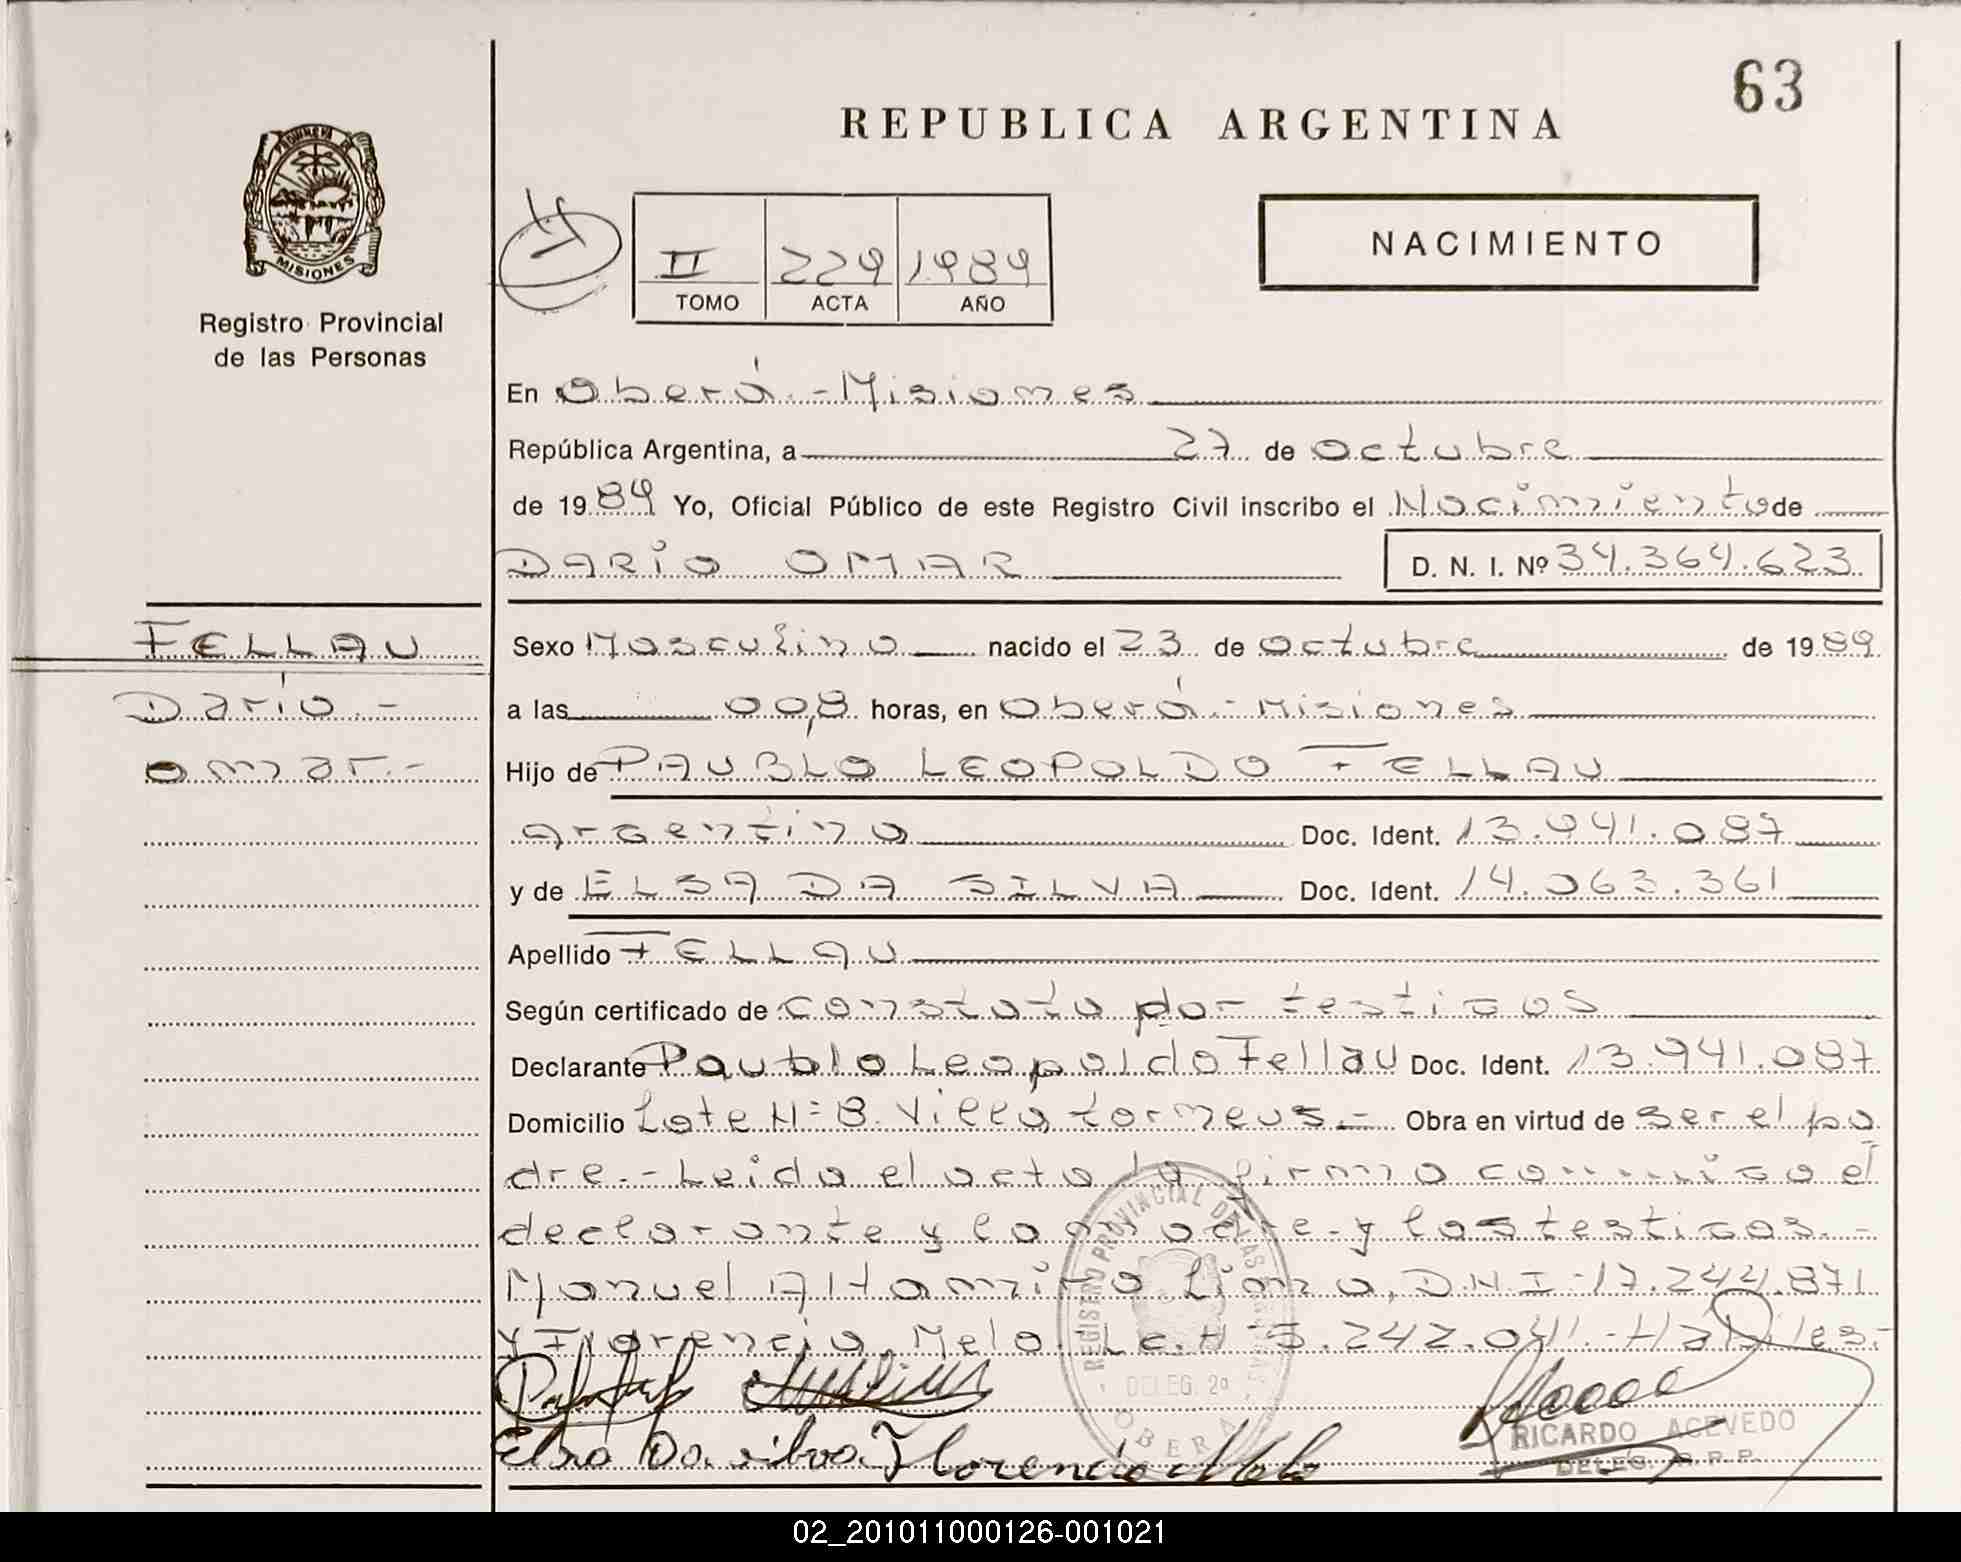 63
REPUBLICA ARGENTINA
PROVINCIA DE
MISIONES
Registro Provincial
de las Personas
II 229 1989
TOMO ACTA AÑO
NACIMIENTO
En Oberá.-Misiones
República Argentina, a 27 de octubre
de 1989 Yo, Oficial Público de este Registro Civil inscribo el Nacimiento de
DARIO OMAR D. N. I. Nº 34.364.623
FELLAU
Dario.-
omar.-
Sexo Masculino nacido el 23 de octubre de 1989
a las 00,8 horas, en Oberá.-Misiones
Hijo de PAUBLO LEOPOLDO FELLAU
Argentino Doc. Ident. 13.941.087
y de ELSA DA SILVA Doc. Ident. 14.063.361
Apellido FELLAU
Según certificado de constato por testigos
Declarante Paublo Leopoldo Fellau Doc. Ident. 13.941.087
Domicilio Lote N=8 Villa tormeus.- Obra en virtud de ser el pa
dre.-Leida el acta la firma conmigo el
declarante y la madre y los testigos.-
Manuel Altamiro Lima, D.N.I-17.244.871
y Florencio Melo Le.N=5.242.041.-Habiles.-
REGISTRO PROVINCIAL DE LAS PERSONAS
DELEG. 2ª
OBERA
Elsa Da silva Florencio Melo
RICARDO ACEVEDO
DELEG. R.P.P.
02_201011000126-001021